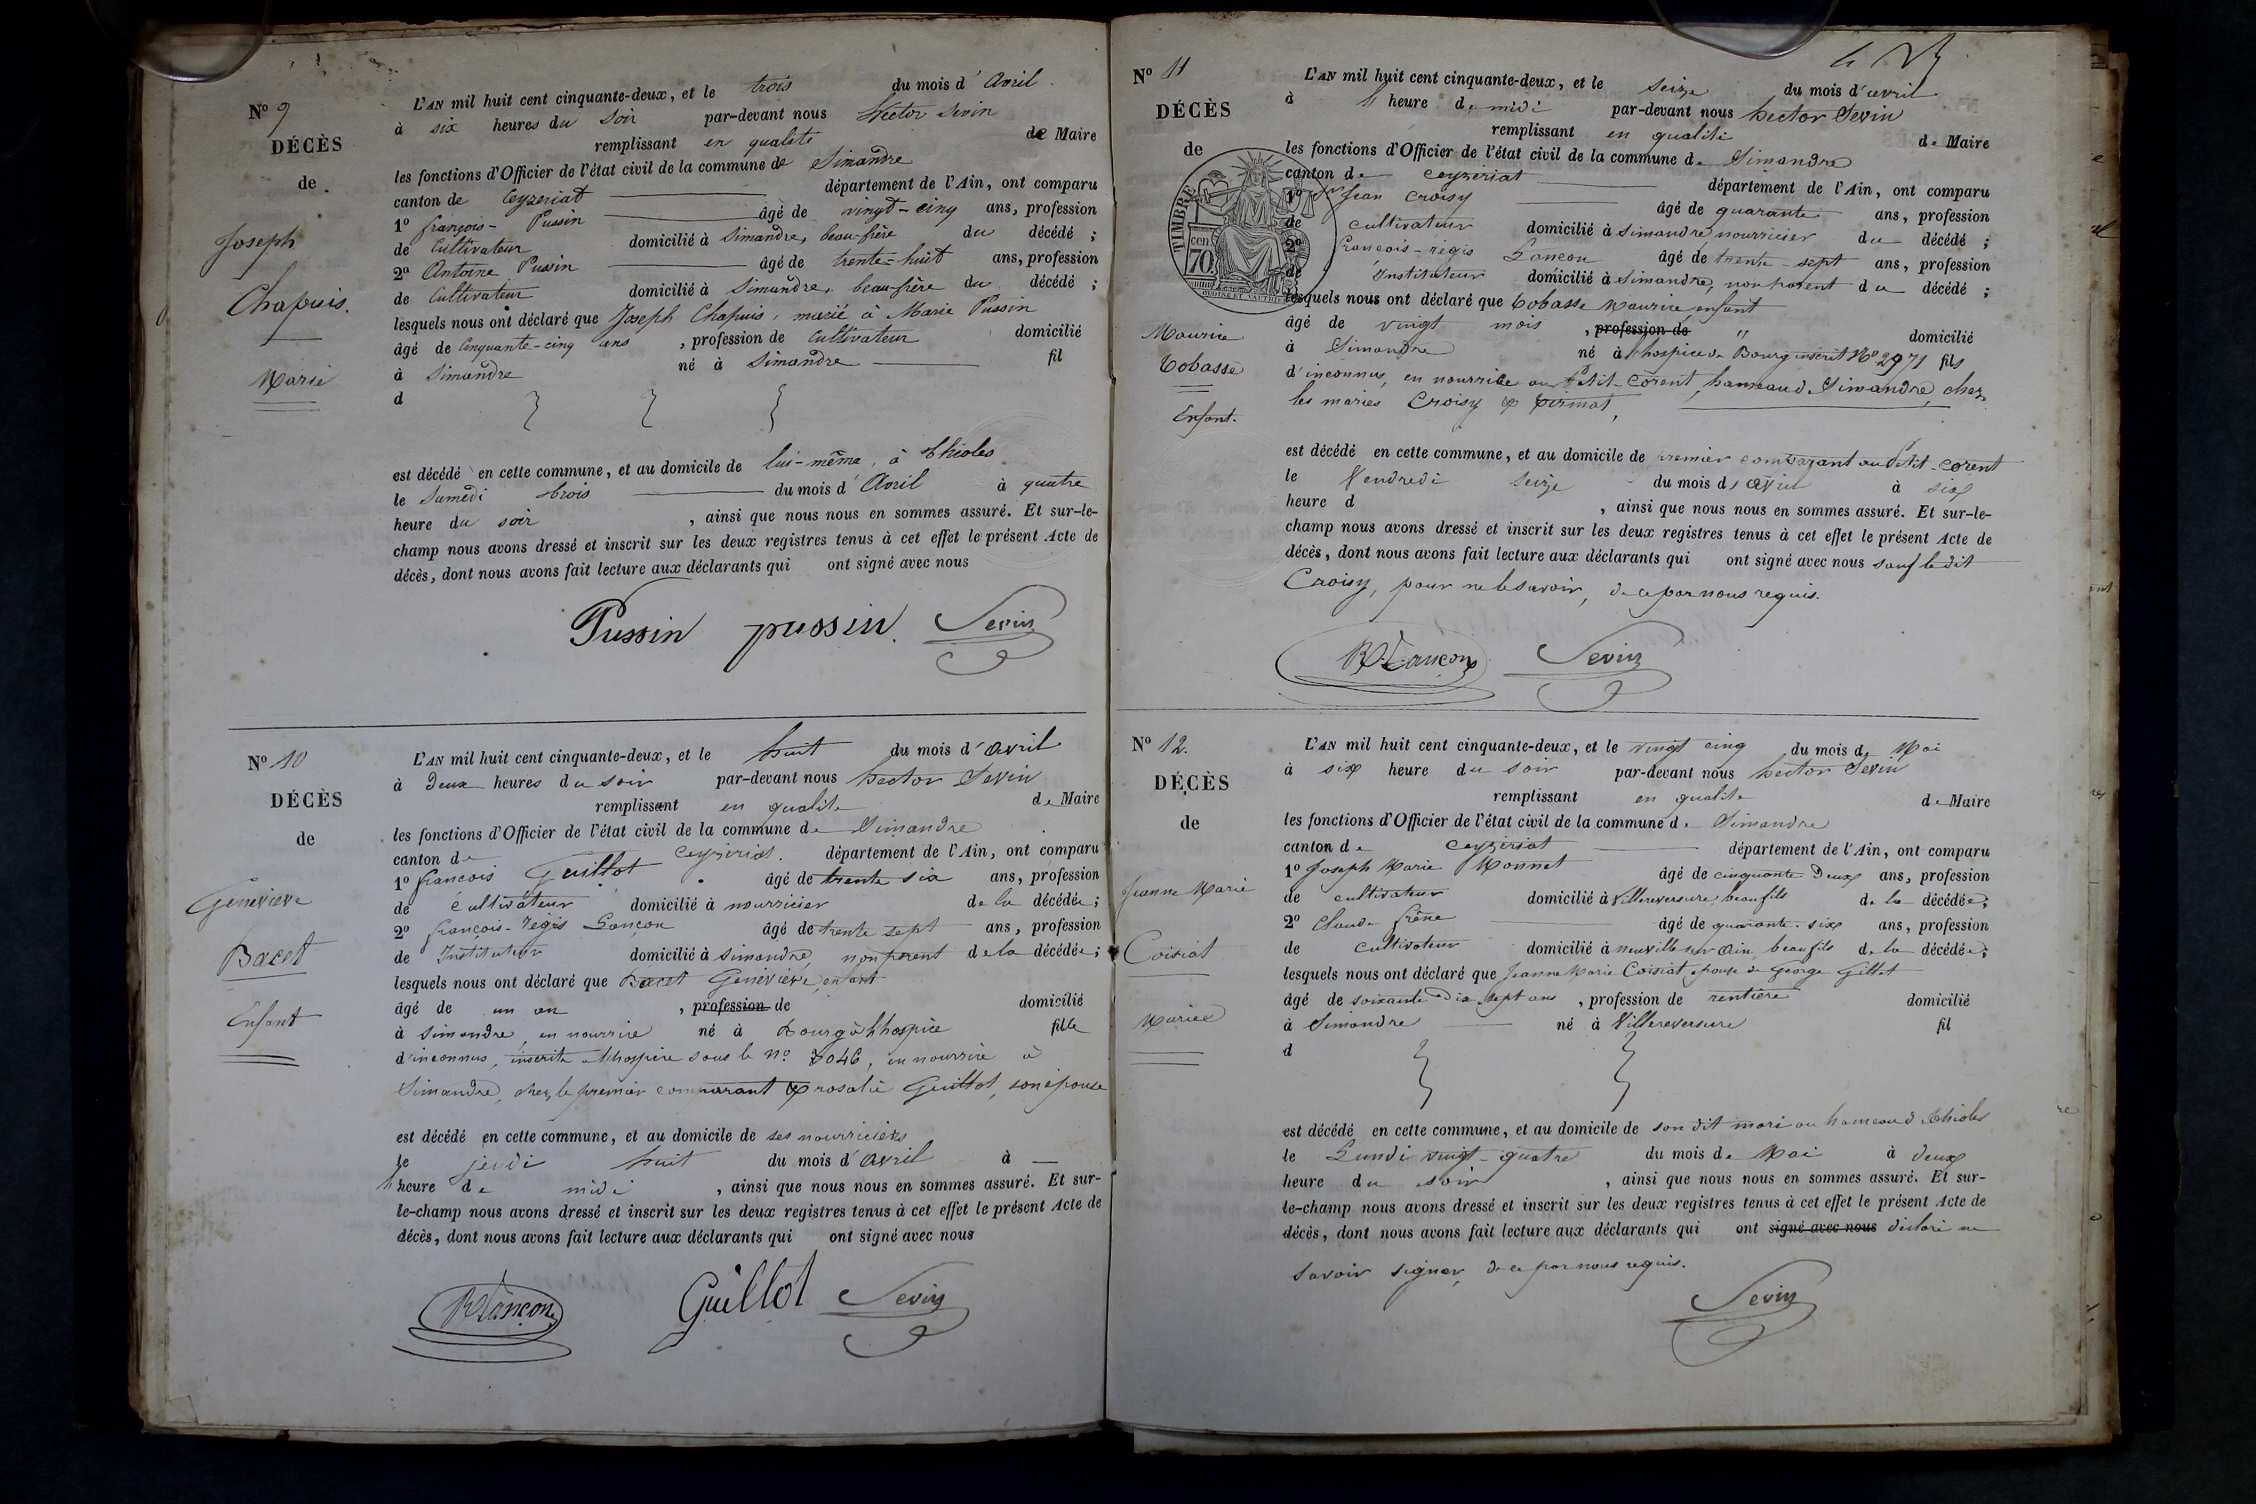 N° 9
DÉCÈS
de
Joseph
Chapuis.
Marié
L'AN mil huit cent cinquante-deux, et le trois du mois d'Avril
à six heures du soir par-devant nous Hector Sevin
remplissant en qualité de Maire
les fonctions d'Officier de l'état civil de la commune de Simandre
canton de Ceyzeriat département de l'Ain, ont comparu
1° françois Pussin âgé de vingt-cinq ans, profession
de Cultivateur domicilié à Simandre, beau-frère du décédé ;
2° Antoine Pussin âgé de trente-huit ans, profession
de Cultivateur domicilié à Simandre, beau-frère du décédé ;
lesquels nous ont déclaré que Joseph Chapuis, marié à Marie Pussin
âgé de Cinquante-cinq ans, profession de Cultivateur domicilié
à Simandre né à Simandre fil
d
est décédé en cette commune, et au domicile de lui-même, à Thioles
le Samedi trois du mois d'Avril à quatre
heure du soir, ainsi que nous nous en sommes assuré. Et sur-le-
champ nous avons dressé et inscrit sur les deux registres tenus à cet effet le présent Acte de
décès, dont nous avons fait lecture aux déclarants qui ont signé avec nous
Pussin pussin. Sevin
N° 10
DÉCÈS
de
Génévieve
Bacet
Enfant
L'AN mil huit cent cinquante-deux, et le huit du mois d'Avril
à Deux heures du soir par-devant nous hector Sevin
remplissant en qualité de Maire
les fonctions d'Officier de l'état civil de la commune de Simandre
canton de Ceyzeriat. département de l'Ain, ont comparu
1° francois Guillot âgé de trente six ans, profession
de cultivateur domicilié à nourricier de la décédée;
2° françois-régis Lançon âgé de trente sept ans, profession
de Instituteur domicilié à Simandre, non parent de la décédée;
lesquels nous ont déclaré que Bacet Génévieve, enfant
âgé de un an, profession de domicilié
à simandre, en nourrice né à Bourg à l'hospice fille
d'inconnus, inscrite à l'hospice sous le n° 3046, en nourrice à
Simandre, chez le premier comparant & rosalie Guillot, son épouse
est décédé en cette commune, et au domicile de ses nourriciers
le jeudi huit du mois d'Avril à —
heure de midi, ainsi que nous nous en sommes assuré. Et sur-
le-champ nous avons dressé et inscrit sur les deux registres tenus à cet effet le présent Acte de
décès, dont nous avons fait lecture aux déclarants qui ont signé avec nous
R Lançon Guillot Sevin
N° 11
DÉCÈS
de
TIMBRE
70 cen
Maurice
Cobasse
Enfant.
L'AN mil huit cent cinquante-deux, et le seize du mois d'avril
à heure de midi par-devant nous hector Sevin
remplissant en qualité de Maire
les fonctions d'Officier de l'état civil de la commune de Simandre
canton de ceyzeriat département de l'Ain, ont comparu
1° Jean Croisy âgé de quarante ans, profession
de cultivateur domicilié à Simandre, nourricier du décédé ;
2° françois-régis Lancon âgé de trente-sept ans, profession
de Instituteur domicilié à Simandre, non parent du décédé ;
lesquels nous ont déclaré que Cobasse Maurice enfant
âgé de vingt mois, profession de " domicilié
à Simandre né à l'hospice de Bourg inscrit N° 2971 fils
d'inconnus, en nourrice au Petit-Corent, hameau d. Simandre, chez
les mariés Croisy & pirmat,
est décédé en cette commune, et au domicile de premier comparant au Petit-Corent
le Vendredi seize du mois d'avril à six
heure d, ainsi que nous nous en sommes assuré. Et sur-le-
champ nous avons dressé et inscrit sur les deux registres tenus à cet effet le présent Acte de
décès, dont nous avons fait lecture aux déclarants qui ont signé avec nous sauf ledit
Croisy, pour ne le savoir, de ce par nous requis.
R Lançon Sevin
N° 12.
DÉCÈS
de
Jeanne Marie
Coisiat
Mariée
L'AN mil huit cent cinquante-deux, et le vingt cinq du mois de Mai
à six heure du soir par-devant nous hector Sevin
remplissant en qualité de Maire
les fonctions d'Officier de l'état civil de la commune de Simandre
canton de ceyzeriat département de l'Ain, ont comparu
1° Joseph Marie Monnet âgé de cinquante Deux ans, profession
de cultivateur domicilié à Villereversure, beau fils de la décédée;
2° Claude frêne âgé de quarante-six ans, profession
de cultivateur domicilié à neuville sur Ain, beau fils de la décédée;
lesquels nous ont déclaré que Jeanne Marie Coisiat, épouse de George Gillet
âgé de soixante-Dix sept ans, profession de rentière domicilié
à Simandre né à Villereversure fil
d
est décédé en cette commune, et au domicile de son dit mari au hameau d. Thioles
le Lundi vingt-quatre du mois de Mai à deux
heure du soir, ainsi que nous nous en sommes assuré. Et sur-
le-champ nous avons dressé et inscrit sur les deux registres tenus à cet effet le présent Acte de
décès, dont nous avons fait lecture aux déclarants qui ont signé avec nous déclaré ne
savoir signer, de ce par nous requis.
Sevin